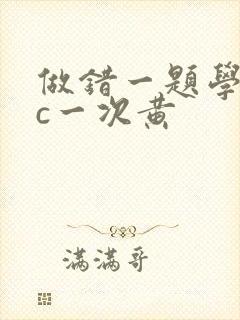 做錯一題學
c一次黃
滿滿哥